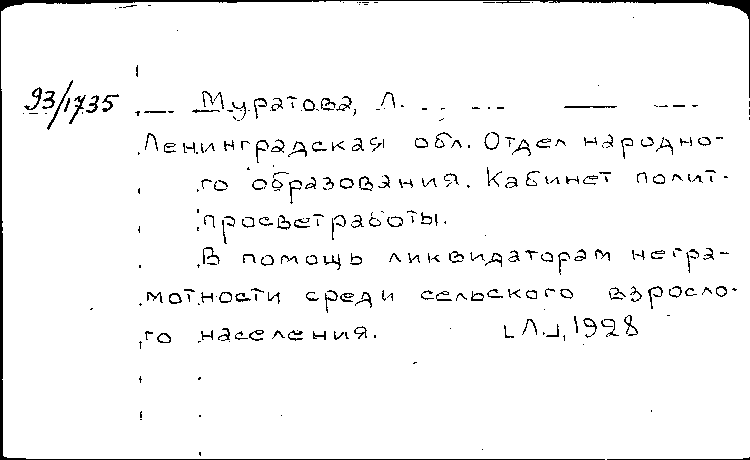 93/1735 Муратова, Л.
Ленинградская обл. Отдел народно-
го образования. Кабинет полит-
просветработы.
В помощь ликвидаторам негра-
мотности среди сельского взросло-
го населения. [Л.], 1928